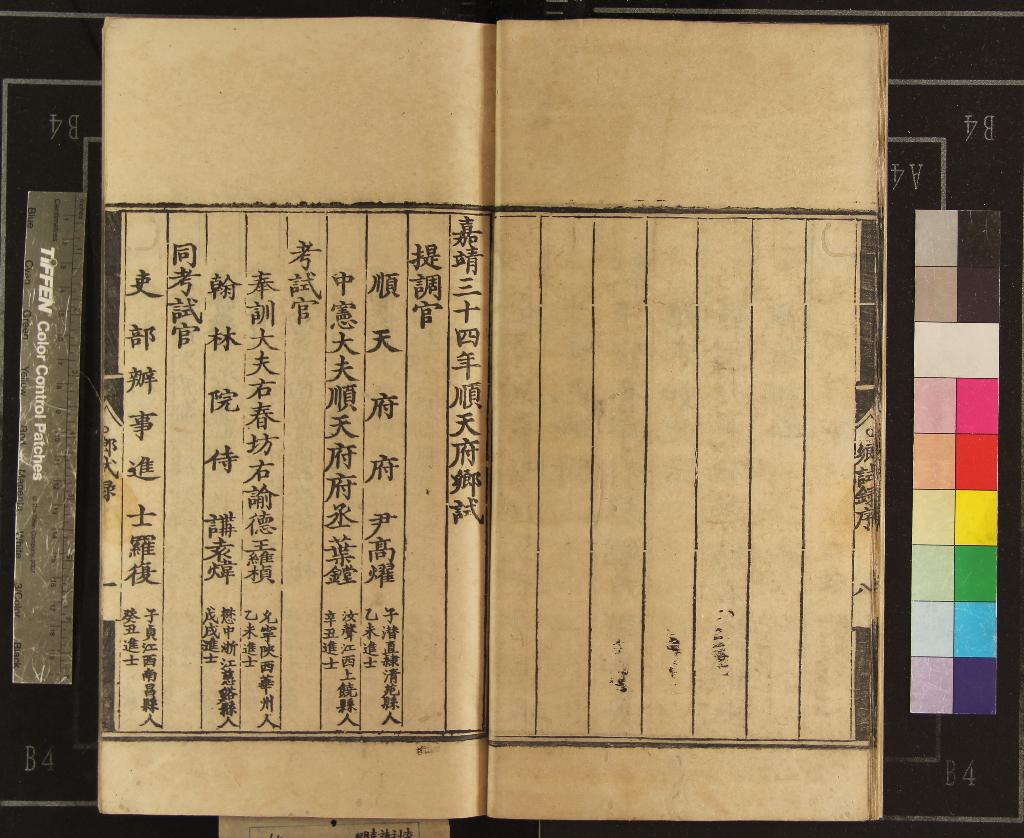 鄉試錄序
八
嘉靖三十四年順天府鄉試
提調官
順天府府尹高燿
子潛直隸清苑縣人
乙未進士
中憲大夫順天府府丞葉鏜
汝聲江西上饒縣人
辛丑進士
考試官
奉訓大夫右春坊右諭德王維楨
允寧陝西華州人
乙未進士
翰林院侍講袁煒
懋中浙江慈谿縣人
戊戌進士
同考試官
吏部辦事進士羅復
子貞江西南昌縣人
癸丑進士
鄉試錄
一
TIFFEN Color Control Patches
B4
B4
A4
B4
B4